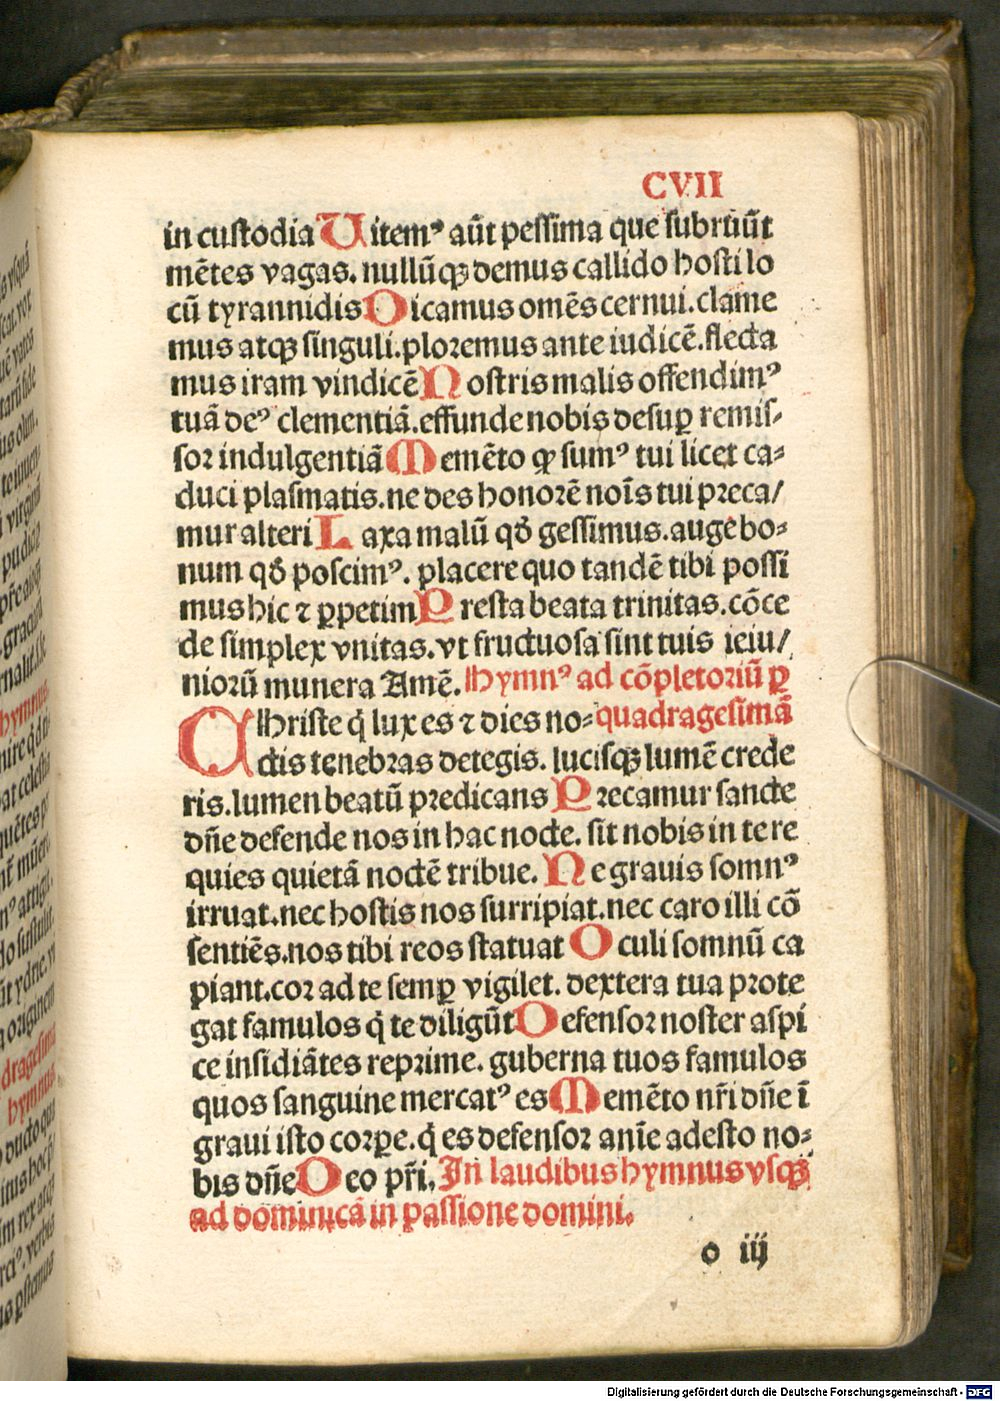 CVII
in custodia Uitemꝰ aūt pessima que subruūt
mētes vagas. nullūqꝫ demus callido hosti lo
cū tyrannidis Dicamus omēs cernui. clame
mus atqꝫ singuli. ploremus ante iudicē. flecta
mus iram vindicē Nostris malis offendimꝰ
tuā deꝰ clementiā. effunde nobis desuꝑ remis⸗
sor indulgentiā Memēto ꝙ sumꝰ tui licet ca⸗
duci plasmatis. ne des honorē noīs tui preca/
mur alteri Laxa malū qđ gessimus. auge bo⸗
num qđ poscimꝰ. placere quo tandē tibi possi
mus hic ⁊ ꝑpetim Presta beata trinitas. cōce
de simplex vnitas. vt fructuosa sint tuis ieiu/
niorū munera Amē. Hymnꝰ ad cōpletoriū ꝑ
Christe q̄ lux es ⁊ dies no⸗ quadragesimā
ctis tenebras detegis. lucisqꝫ lumē crede
ris. lumen beatū predicans Precamur sancte
dn̄e defende nos in hac nocte. sit nobis in te re
quies quietā noctē tribue. Ne grauis somnꝰ
irruat. nec hostis nos surripiat. nec caro illi cō
sentiēs. nos tibi reos statuat Oculi somnū ca
piant. cor ad te semꝑ vigilet. dextera tua prote
gat famulos q̄ te diligūt Defensor noster aspi
ce insidiātes reprime. guberna tuos famulos
quos sanguine mercatꝰ es Memēto nr̄i dn̄e ī
graui isto corꝑe. q̄ es defensor anīe adesto no⸗
bis dn̄e Deo pr̄i. In laudibus hymnus vsqꝫ
ad dominicā in passione domini.
o iij
Digitalisierung gefördert durch die Deutsche Forschungsgemeinschaft - DFG